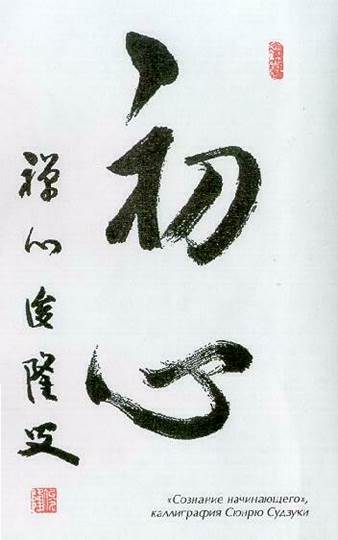 初心
禅心 俊隆
«Сознание начинающего»,
каллиграфия Сюнрю Судзуки